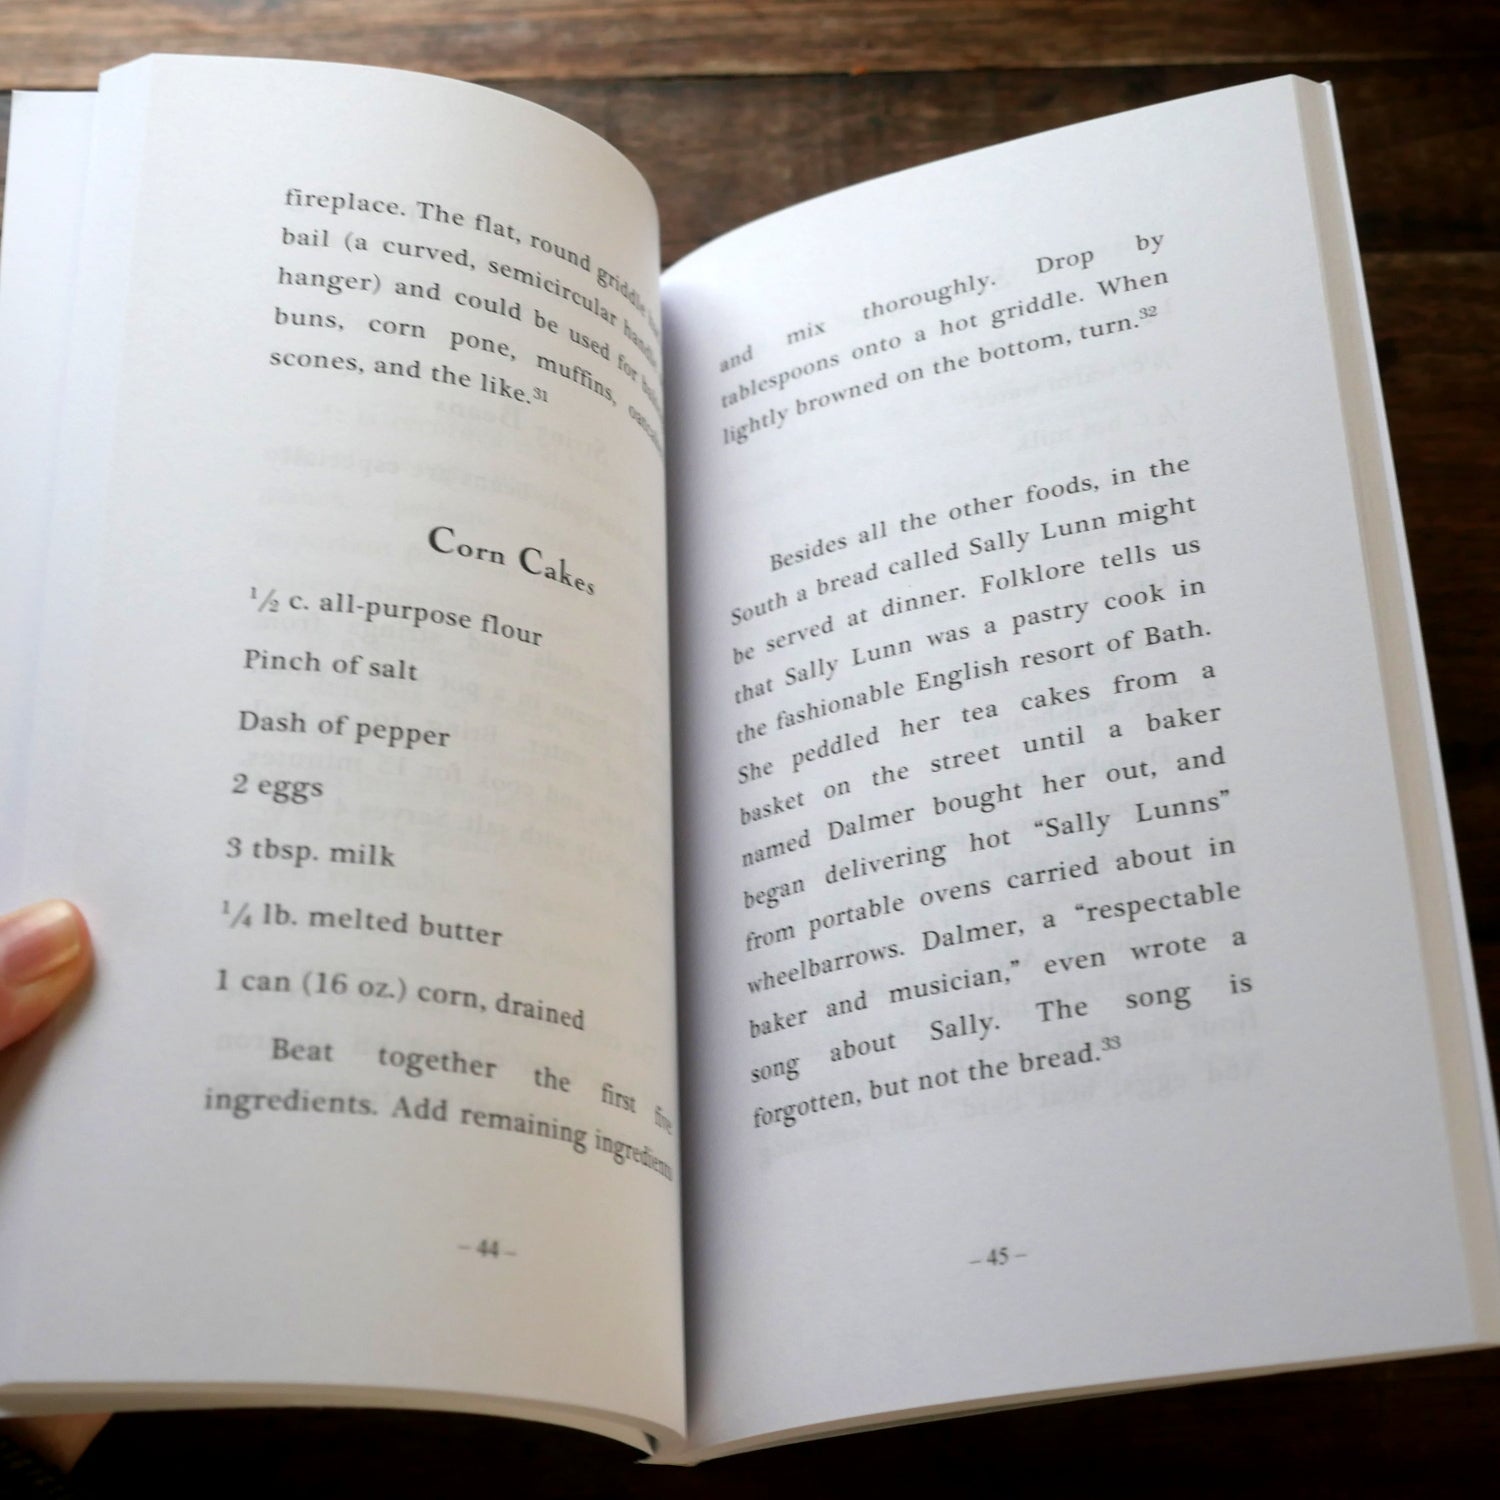 fireplace. The flat, round griddle
bail (a curved, semicircular
hanger) and could be used for
buns, corn pone, muffins,
scones, and the like.31
Corn Cakes
1/2 c. all-purpose flour
Pinch of salt
Dash of pepper
2 eggs
3 tbsp. milk
1/4 lb. melted butter
1 can (16 oz.) corn, drained
Beat together the first five
ingredients. Add remaining ingredients
– 44 –
and mix thoroughly. Drop by
tablespoons onto a hot griddle. When
lightly browned on the bottom, turn.32
Besides all the other foods, in the
South a bread called Sally Lunn might
be served at dinner. Folklore tells us
that Sally Lunn was a pastry cook in
the fashionable English resort of Bath.
She peddled her tea cakes from a
basket on the street until a baker
named Dalmer bought her out, and
began delivering hot “Sally Lunns”
from portable ovens carried about in
wheelbarrows. Dalmer, a “respectable
baker and musician,” even wrote a
song about Sally. The song is
forgotten, but not the bread.33
– 45 –